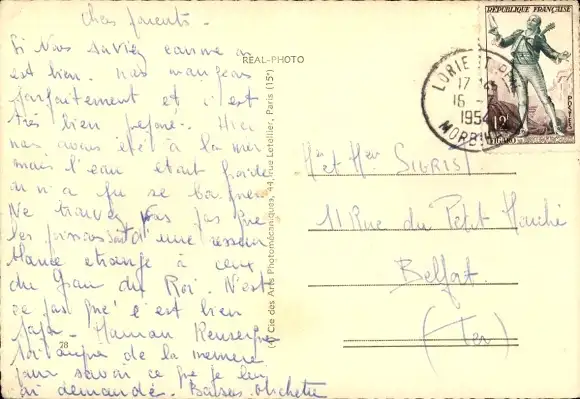 Chers parents.
Si vous saviez comme on
est bien. nous mangeons
parfaitement et c'est
très bien préparé. Hier
nous avons été à la mer
mais l'eau était froide
on n'a pu se baigner
Ne trouvez vous pas que
les poissons d'une ressem
blance étrange à ceux
du Grau du Roi. N'est
ce pas c'est bien
papa. Maman
toi auprès de la
pour savoir ce que je lui
ai demandé. Baisers. Michette
REAL-PHOTO
Cie des Arts Photomécaniques, 44, rue Letellier, Paris (15e)
78
REPUBLIQUE FRANÇAISE
POSTES
12F
FIGARO
17
16 -
1954
MORBIHAN
Mr et Mme SIGRIST
11 Rue du Petit Mouché
Belfort
(Ter)